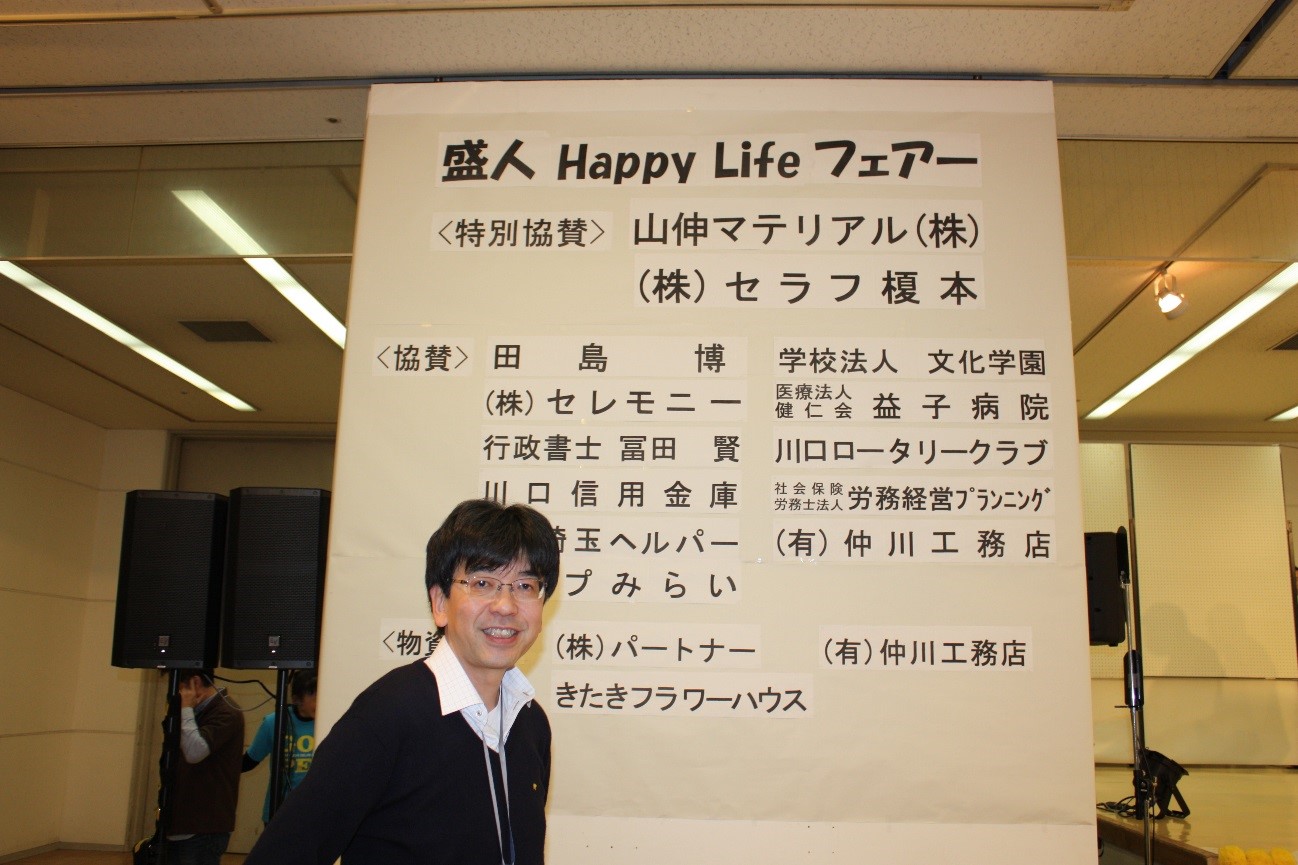 盛人 Happy Life フェアー
<特別協賛> 山伸マテリアル(株)
(株)セラフ榎本
<協賛> 田島 博 学校法人 文化学園
(株)セレモニー 医療法人 健仁会 益子病院
行政書士 冨田 賢 川口ロータリークラブ
川口信用金庫 社会保険 労務士法人 労務経営プランニング
埼玉ヘルパー (有)仲川工務店
プみらい
<物資 (株)パートナー (有)仲川工務店
きたきフラワーハウス